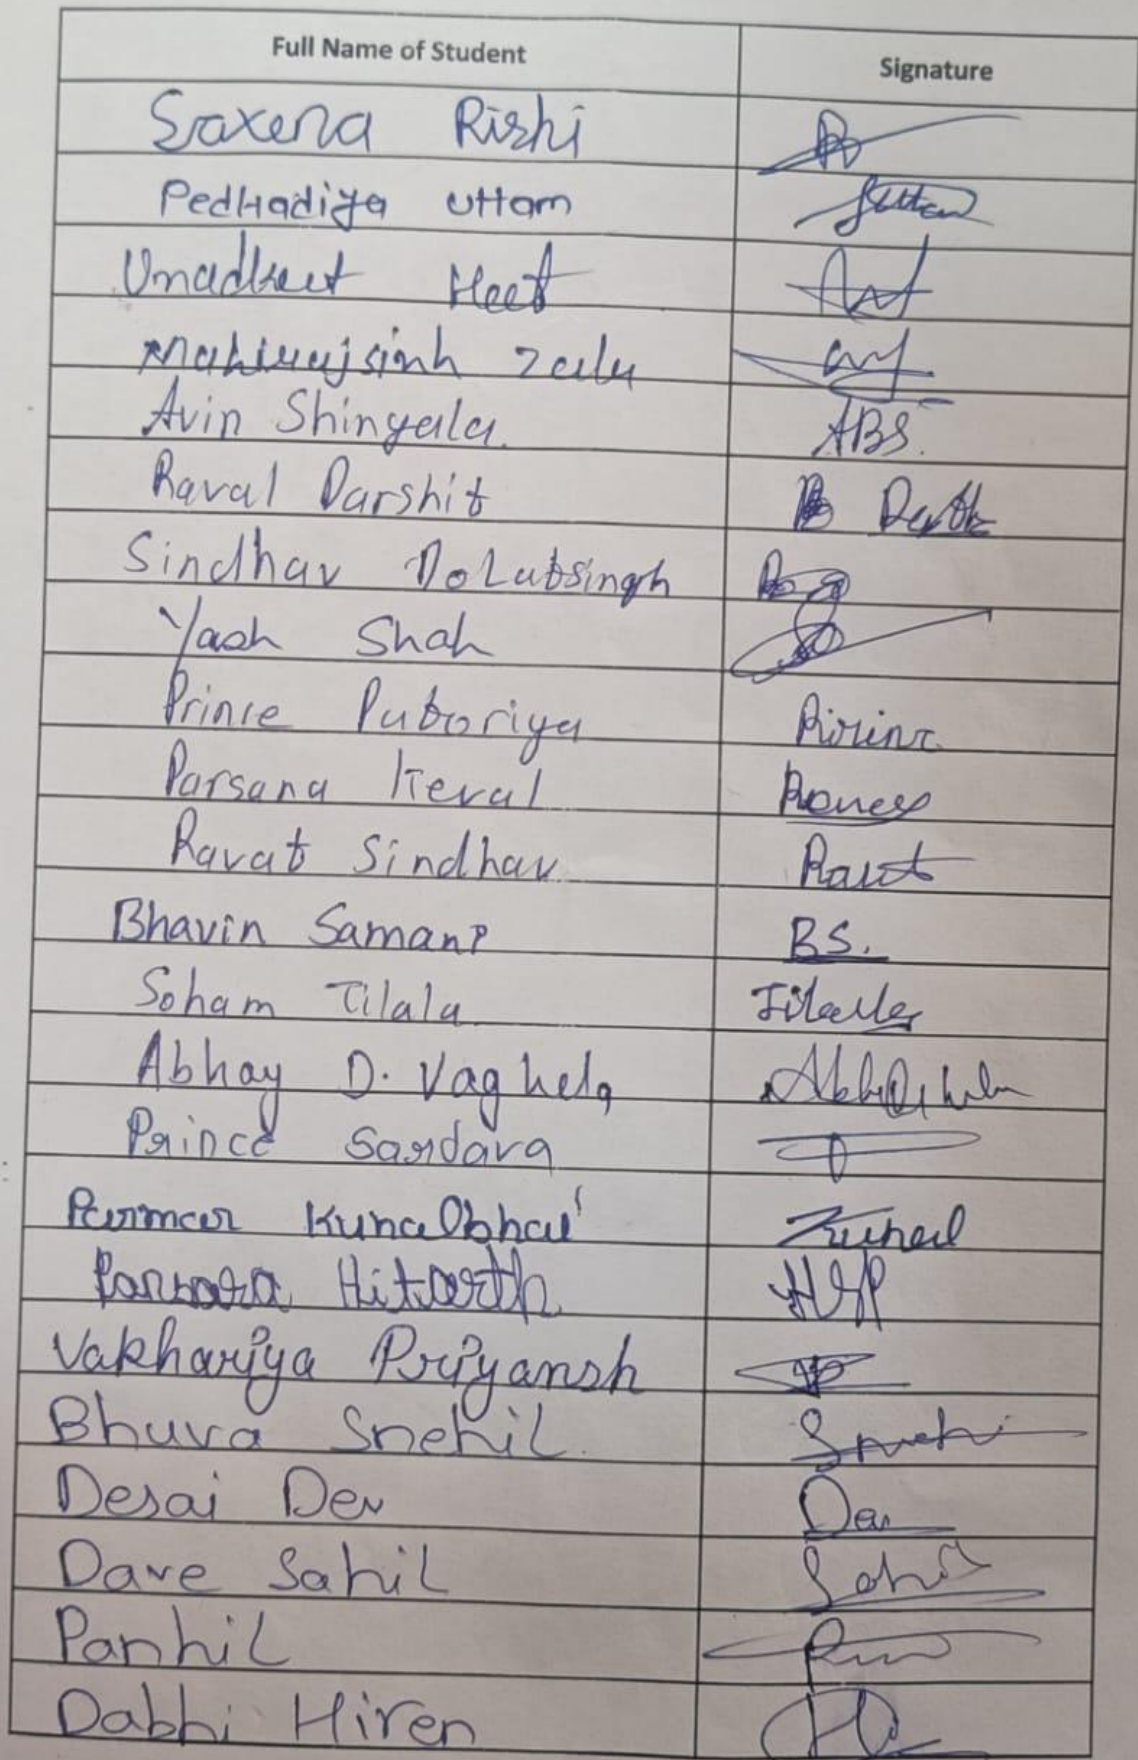 Full Name of Student Signature
Saxena Rishi
Pedhadiya Uttam Uttam
Unadkeet Heet
Mahirajsinh Zala
Avin Shingala. ABS.
Raval Darshit
Sindhav Dolatsingh
Yash Shah
Prince Patoriya
Parsana Keval
Ravat Sindhav Ravat
Bhavin Samani BS.
Soham Tilala
Abhay D. Vaghela
Prince Sardava
Parmar Kunalbhai Kunal
Hitarth
Vakhariya Priyansh
Bhuva Snehil
Desai Dev Dev
Dave Sahil Sahil
Panhil
Dabhi Hiren